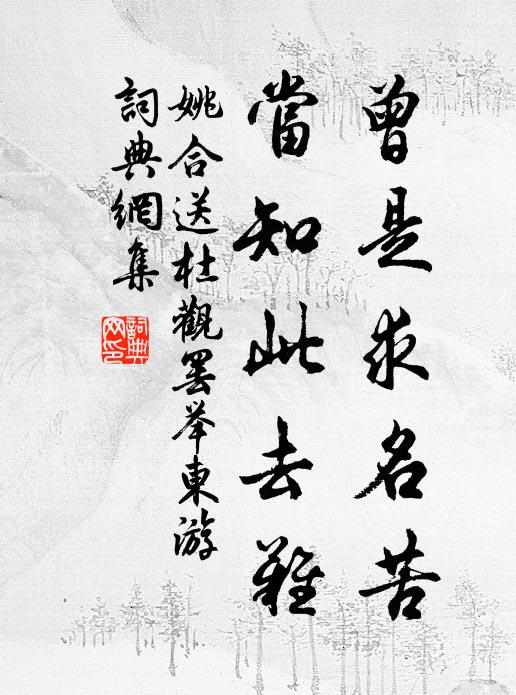 曾是求名苦
當知此去難
姚合送杜觀罷举東游
詞典網集
詞典网印